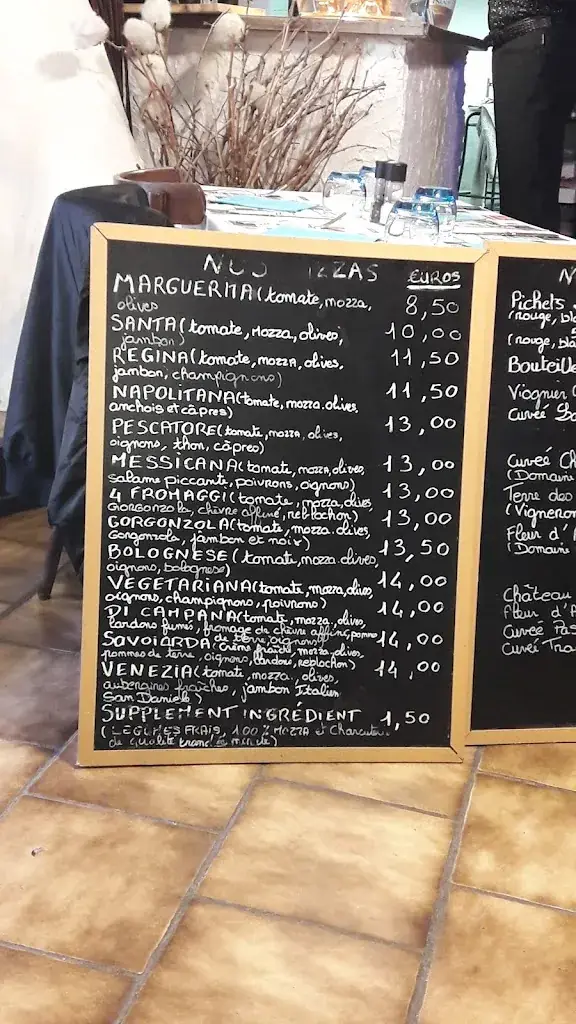 NOS PIZZAS EUROS
MARGUERITA (tomate, mozza, 8,50
olives
SANTA (tomate, mozza, olives, 10,00
jambon)
REGINA (tomate, mozza, olives, 11,50
jambon, champignons)
NAPOLITANA (tomate, mozza. olives, 11,50
anchois et câpres)
PESCATORE (tomate, mozza, olives, 13,00
oignons, thon, câpres)
MESSICANA (tomate, mozza, olives, 13,00
salame piccante, poivrons, oignons)
4 FROMAGGI (tomate, mozza, olives 13,00
Gorgonzola, chèvre affiné, reblochon)
GORGONZOLA (tomate, mozza. olives, 13,00
Gorgonzola, jambon et noix)
BOLOGNESE (tomate, mozza. olives, 13,50
oignons, bolognese)
VEGETARIANA (tomate, mozza, olives 14,00
oignons, champignons, poivrons)
DI CAMPANA (tomate, mozza., olives, 14,00
lardons fumés, fromage de chèvre affiné, pomme
de terre, oignons)
SAVOIARDA (crème fraîche, mozza, olives, 14,00
pommes de terre, oignons, lardons, reblochon)
VENEZIA (tomate, mozza., olives, 14,00
aubergines fraîches, jambon Italien
San Daniele)
SUPPLEMENT INGRÉDIENT 1,50
(LEGUMES FRAIS, 100% MOZZA et Charcuterie
de qualité tranché minute)
N
Pichets
(rouge, bla
(rouge, bla
Bouteille
Viognier
Cuvée
Cuveé Ch
(Domaine
Terre des
(Vigneron
Fleur d'
(Domaine
Château
Fleur d'
Cuveé Pas
Cuveé Tra